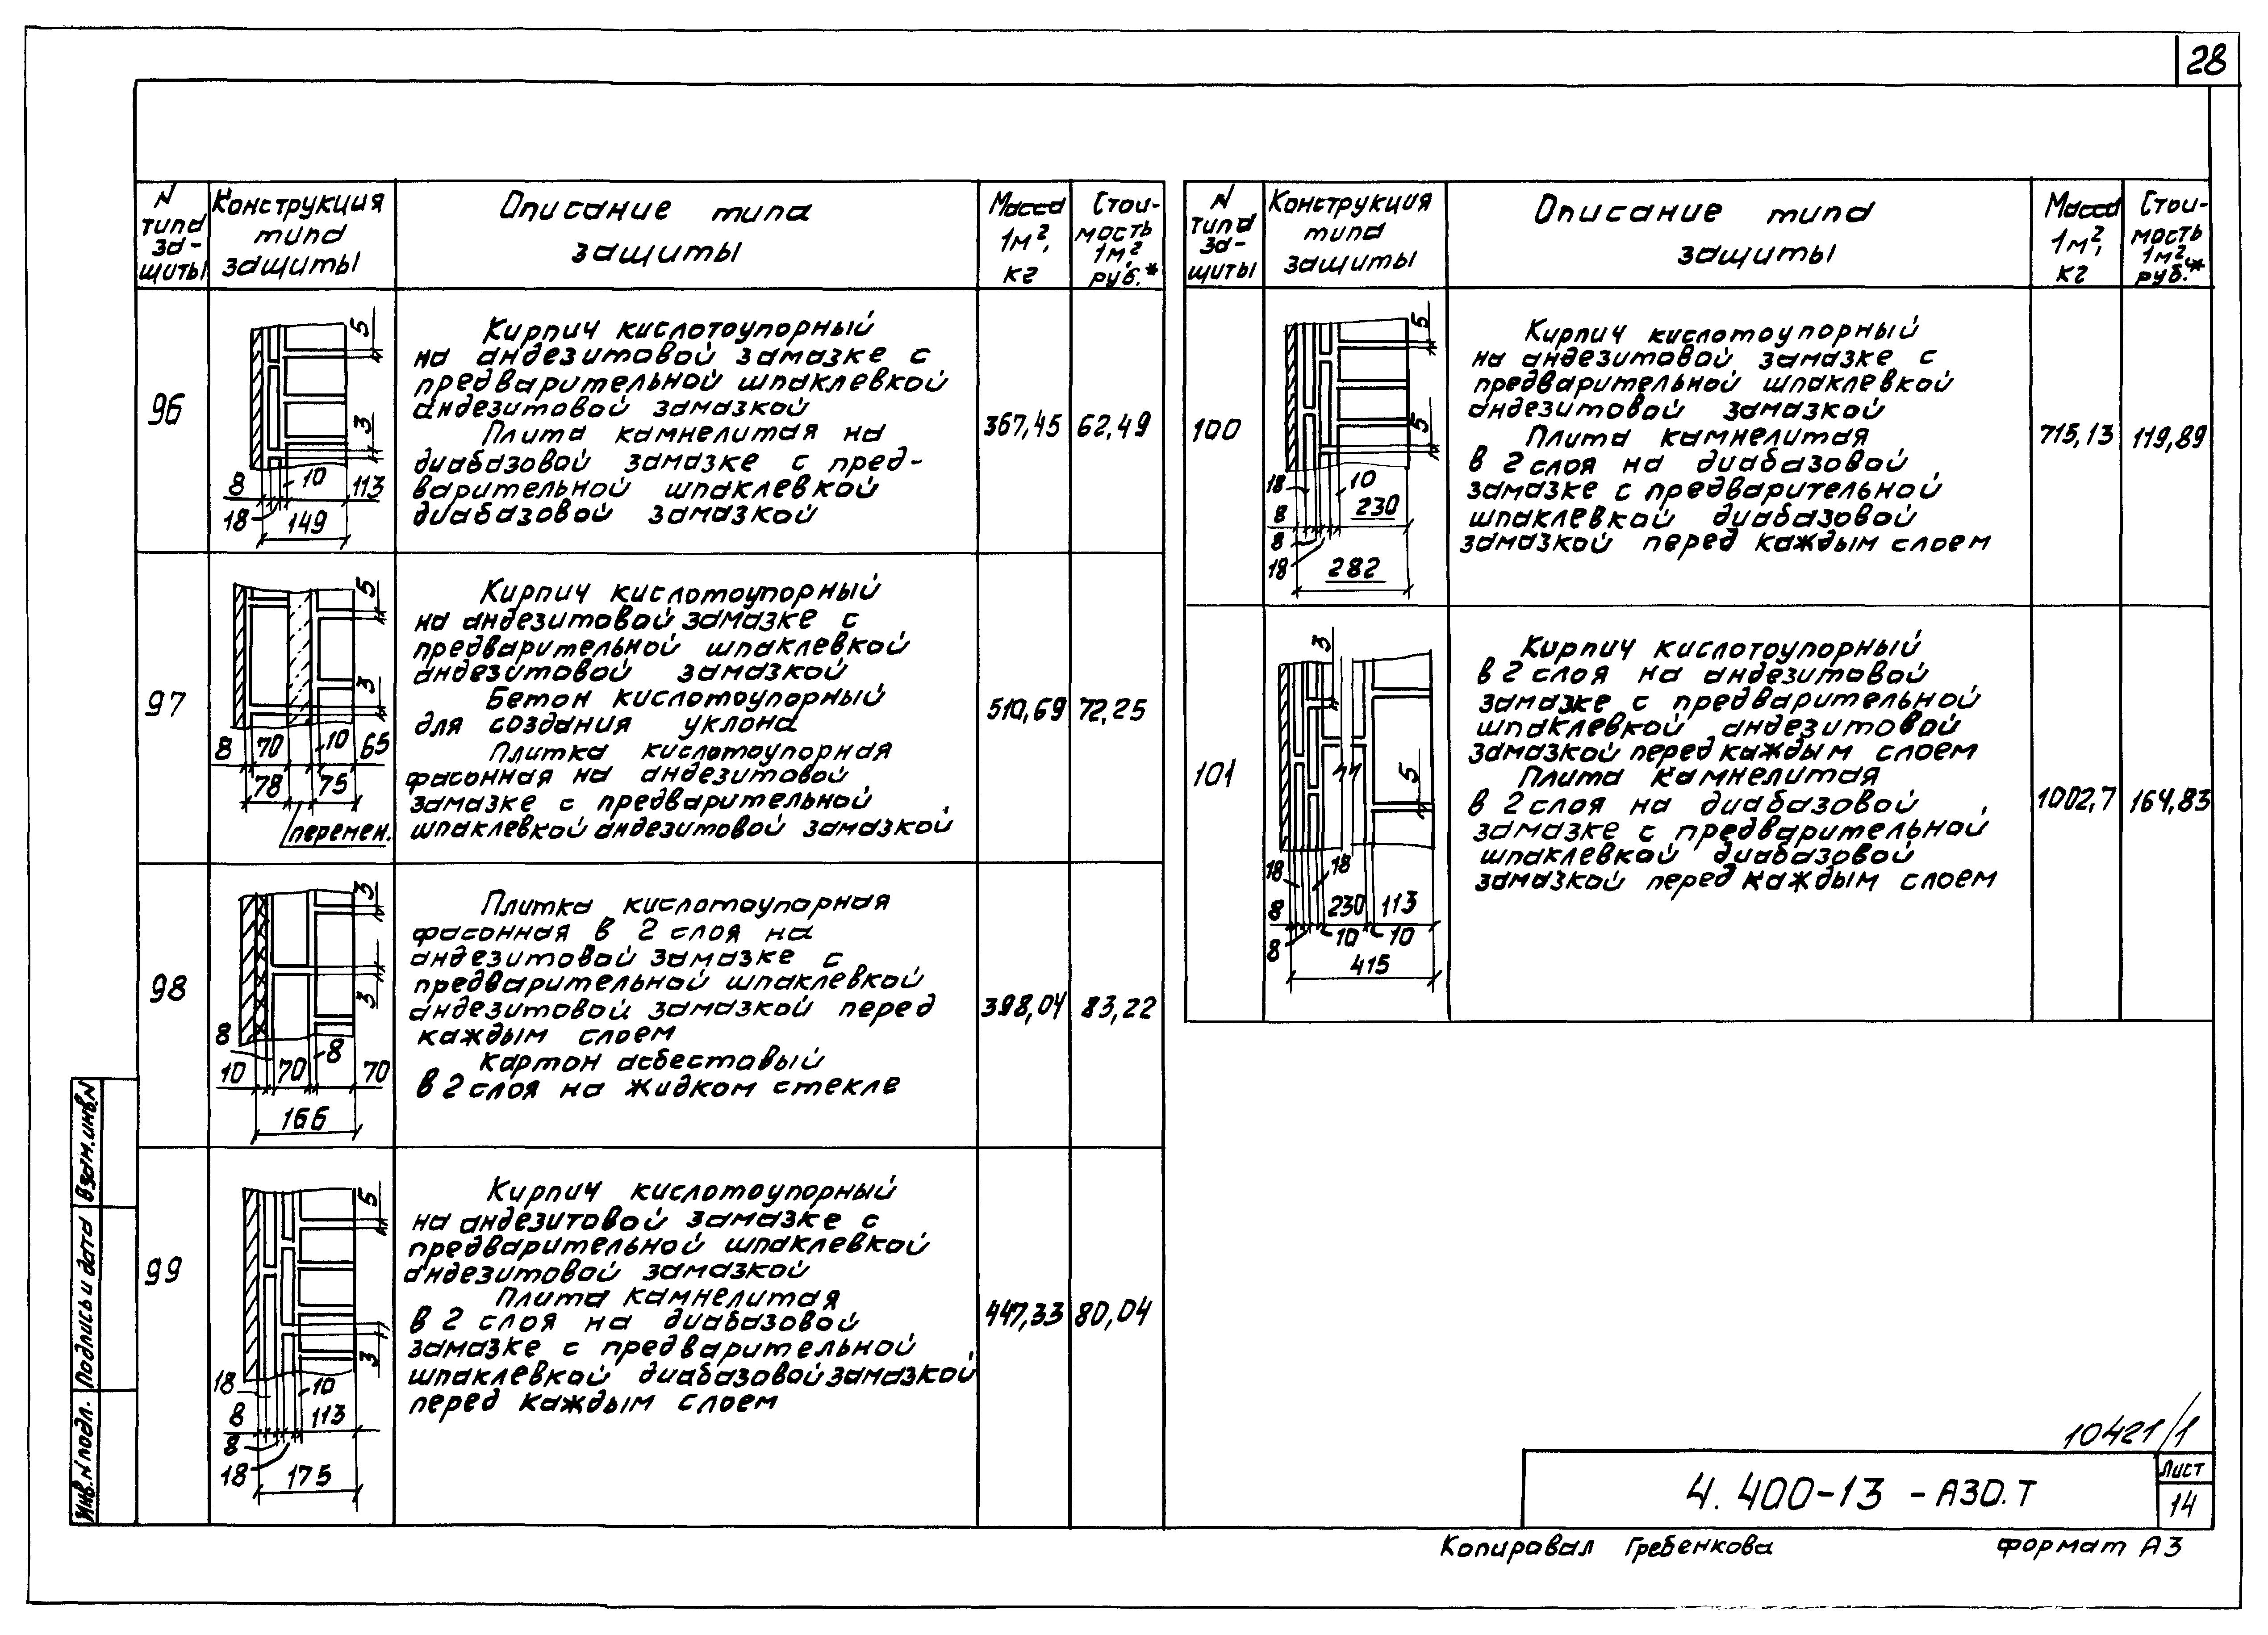 28
N
типа
за-
щиты
Конструкция
типа
защиты
Описание типа
защиты
Масса
1м²,
кг
Стои-
мость
1м²,
руб.*
96
5
3
8
10
113
18
149
Кирпич кислотоупорный
на андезитовой замазке с
предварительной шпаклевкой
андезитовой замазкой
Плита камнелитая на
диабазовой замазке с пред-
варительной шпаклевкой
диабазовой замазкой
367,45
62,49
97
5
3
8
70
10
65
78
75
перемен.
Кирпич кислотоупорный
на андезитовой замазке с
предварительной шпаклевкой
андезитовой замазкой
Бетон кислотоупорный
для создания уклона
Плитка кислотоупорная
фасонная на андезитовой
замазке с предварительной
шпаклевкой андезитовой замазкой
510,69
72,25
98
3
3
8
8
10
70
70
166
Плитка кислотоупорная
фасонная в 2 слоя на
андезитовой замазке с
предварительной шпаклевкой
андезитовой замазкой перед
каждым слоем
Картон асбестовый
в 2 слоя на жидком стекле
398,04
83,22
99
5
3
18
10
8
113
8
18
175
Кирпич кислотоупорный
на андезитовой замазке с
предварительной шпаклевкой
андезитовой замазкой
Плита камнелитая
в 2 слоя на диабазовой
замазке с предварительной
шпаклевкой диабазовой замазкой
перед каждым слоем
447,33
80,04
N
типа
за-
щиты
Конструкция
типа
защиты
Описание типа
защиты
Масса
1м²,
кг
Стои-
мость
1м²,
руб.*
100
5
5
18
10
8
230
8
18
282
Кирпич кислотоупорный
на андезитовой замазке с
предварительной шпаклевкой
андезитовой замазкой
Плита камнелитая
в 2 слоя на диабазовой
замазке с предварительной
шпаклевкой диабазовой
замазкой перед каждым слоем
715,13
119,89
101
3
5
18
18
8
230
113
8
10
10
415
Кирпич кислотоупорный
в 2 слоя на андезитовой
замазке с предварительной
шпаклевкой андезитовой
замазкой перед каждым слоем
Плита камнелитая
в 2 слоя на диабазовой
замазке с предварительной
шпаклевкой диабазовой
замазкой перед каждым слоем
1002,7
164,83
Взам.инв.N
Подпись и дата
Инв.N подл.
10421/1
4.400-13 - АЗО.Т
Лист
14
Копировал Гребенкова
формат А3